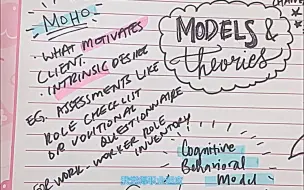 MOHO
MODELS &
theories
• WHAT MOTIVATES
CLIENT.
• INTRINSIC DESIRE
EG. ASSESSMENTS LIKE
ROLE CHECKLIST
OR VOLITIONAL
QUESTIONNAIRE
FOR WORK - WORKER ROLE
INVENTORY
Cognitive
Behavioral
Model